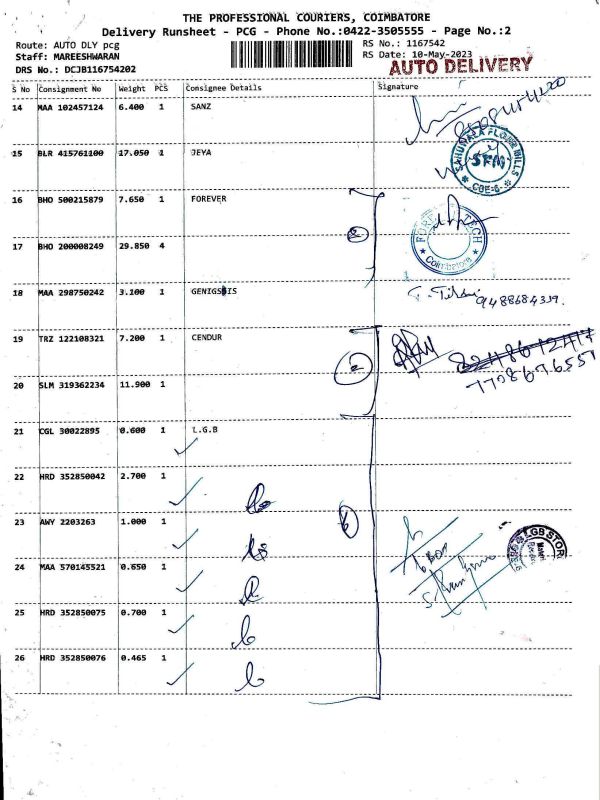 THE PROFESSIONAL COURIERS, COIMBATORE
Delivery Runsheet - PCG - Phone No.:0422-3505555 - Page No.:2
Route: AUTO DLY pcg
RS No.: 1167542
Staff: MAREESHWARAN
RS Date: 10-May-2023
DRS No.: DCJB116754202
AUTO DELIVERY
S No Consignment No Weight PCS Consignee Details Signature
14 MAA 102457124 6.400 1 SANZ
15 BLR 415761100 17.050 1 JEYA
SAHUWALA FLOUR MILLS
SFM
CBE-6
16 BHO 500215879 7.650 1 FOREVER
2
17 BHO 200008249 29.850 4
Coimbatore
18 MAA 298750242 3.100 1 GENIGSBIS
9488684339.
19 TRZ 122108321 7.200 1 CENDUR
2
7708676557
20 SLM 319362234 11.900 1
21 CGL 30022895 0.600 1 L.G.B
22 HRD 352850042 2.700 1
23 AWY 2203263 1.000 1
6
24 MAA 570145521 0.650 1
25 HRD 352850075 0.700 1
26 HRD 352850076 0.465 1